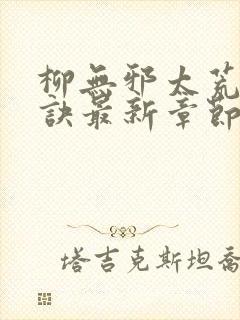 柳無邪太荒
訣最新章節
塔吉克斯坦喬